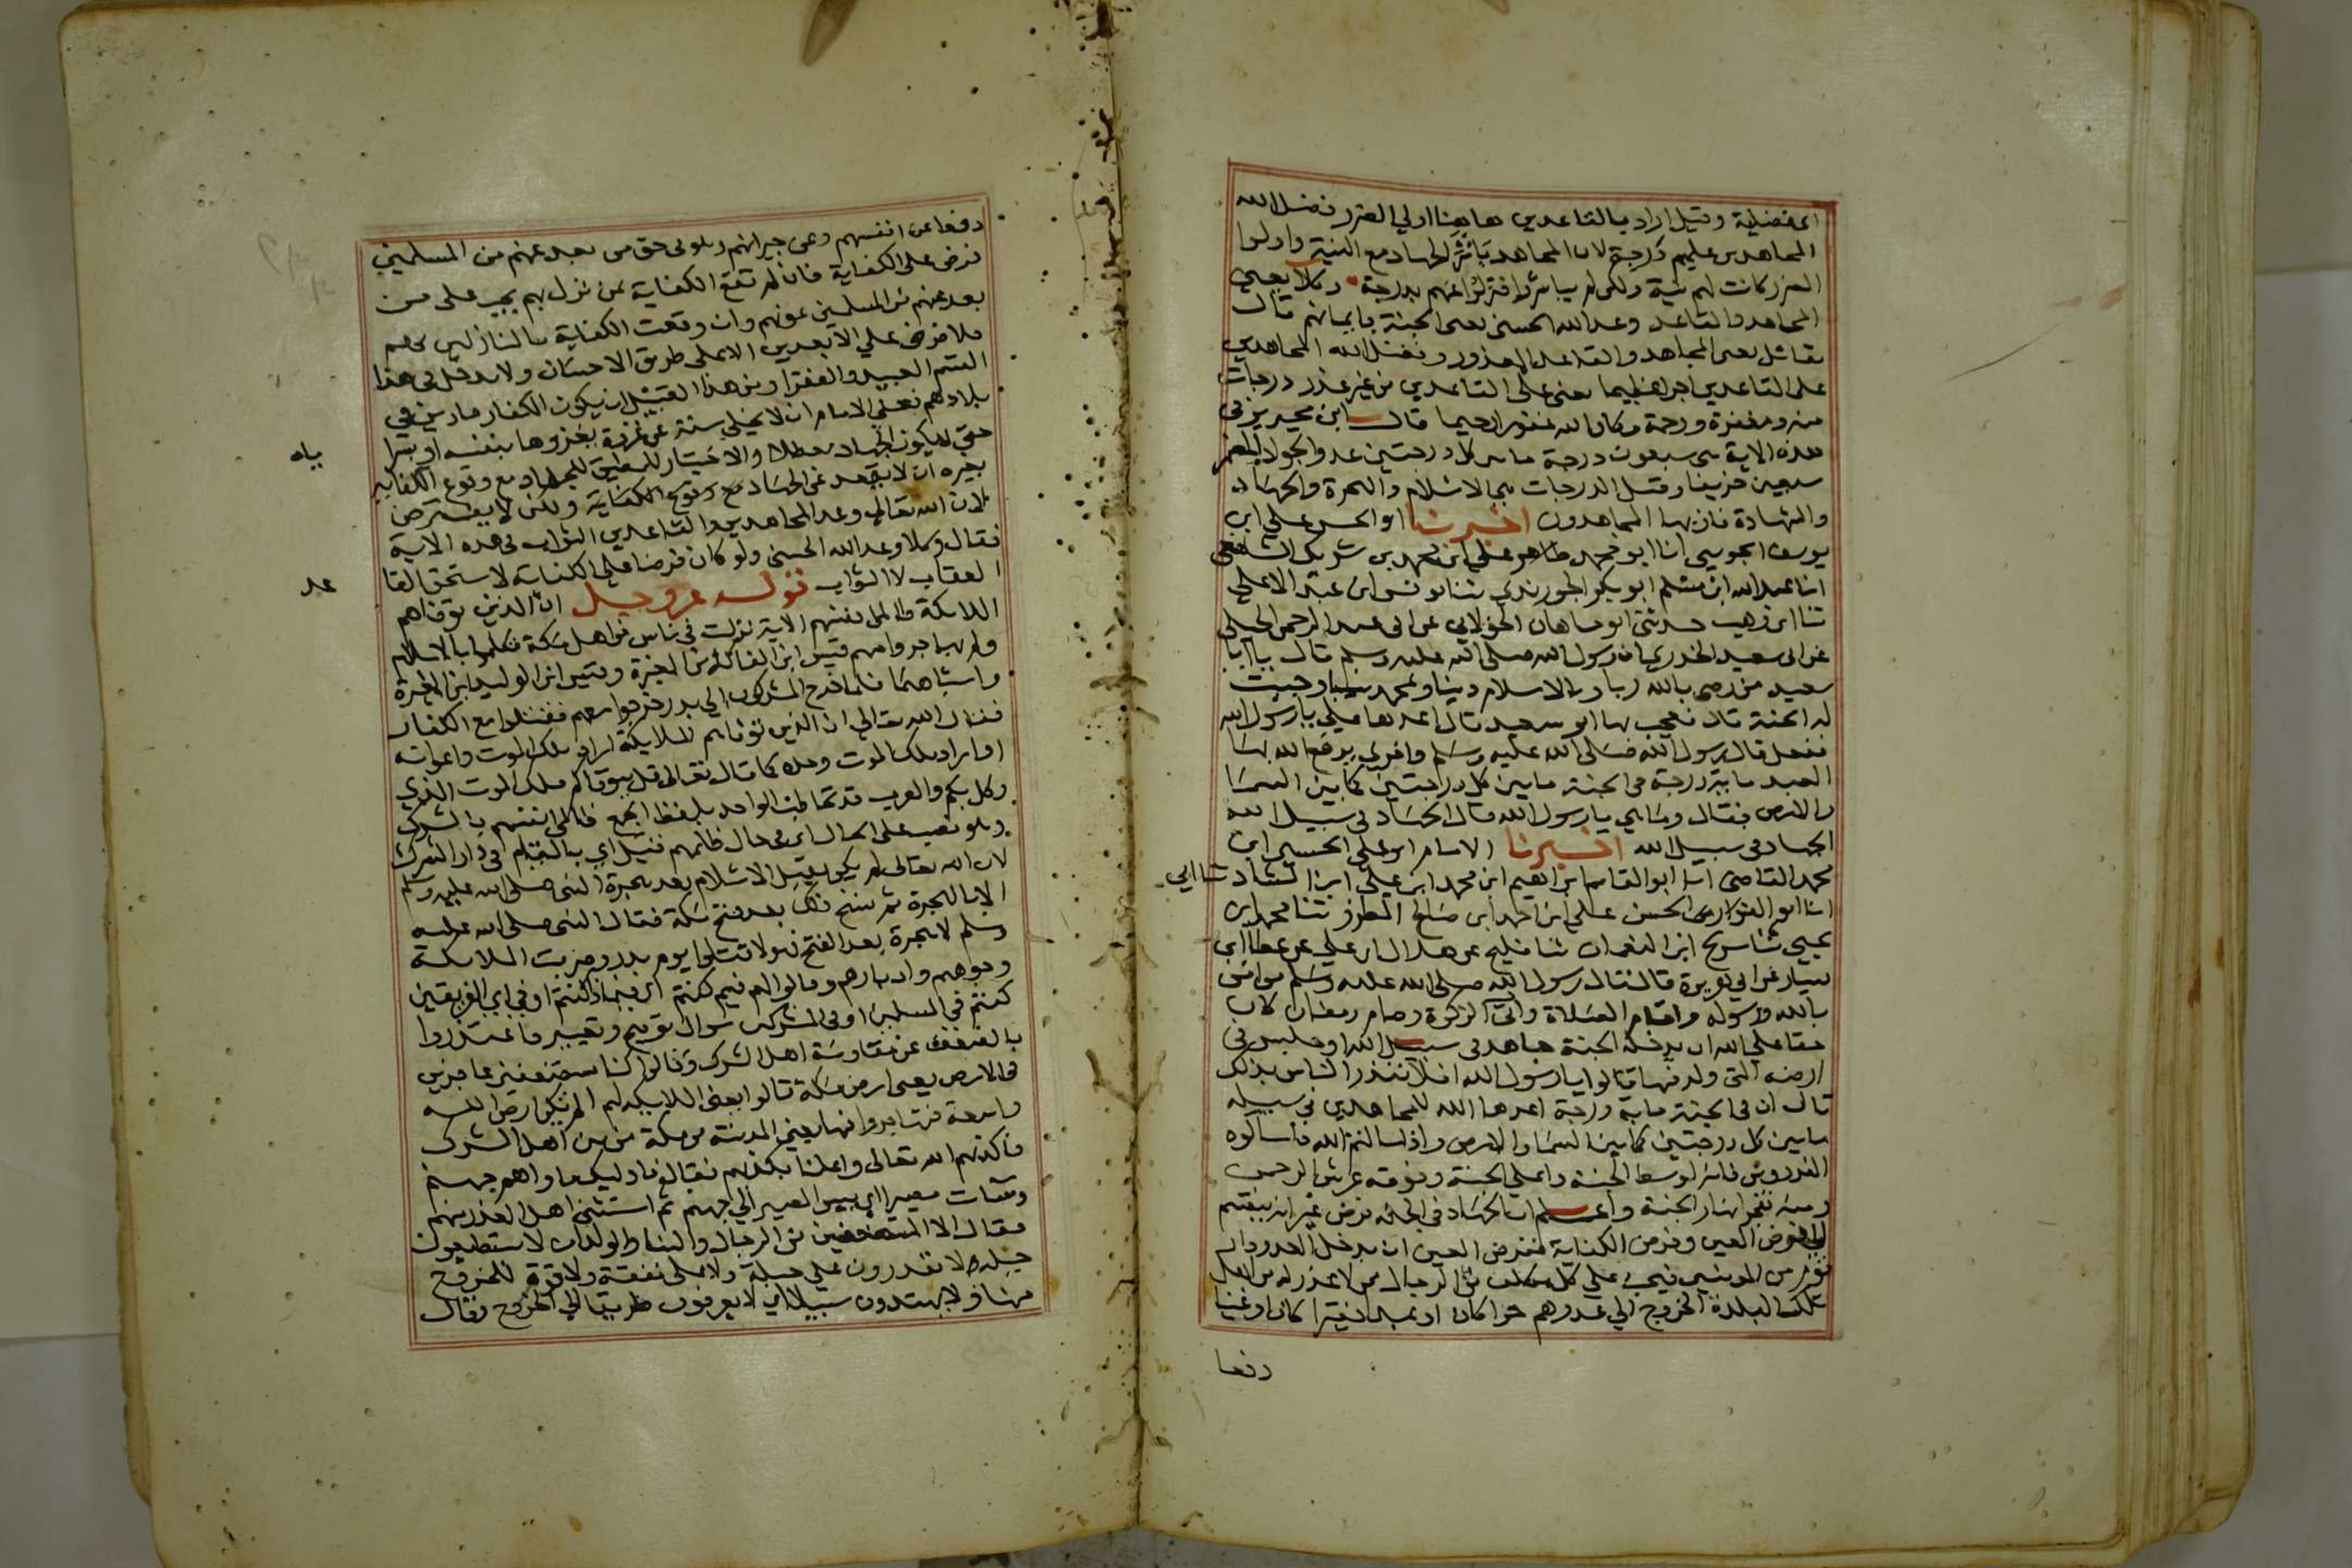 المفضلية وقيل اراد بالقاعدين هاهنا اولي الضرر فضل الله
المجاهدين عليهم درجة لان المجاهد باشر الجهاد مع النية واولوا
الضرر كانت لهم نية ولكن لم يباشروا فنزلوا عنهم بدرجة وكلا يعني
المجاهد والقاعد وعد الله الحسنى يعني الجنة بايمانهم قال
مقاتل يعني المجاهد والقاعد المعذور وفضل الله المجاهدين
على القاعدين اجرا عظيما يعني على القاعدين من غير عذر درجات
منه ومغفرة ورحمة وكان الله غفورا رحيما قال ابن محيريز في
هذه الاية هي سبعون درجة ما بين كل درجتين عدو الجواد المضمر
سبعين خريفا وقيل الدرجات هي الاسلام والهجرة والجهاد
والشهادة فاز بها المجاهدون اخبرنا ابو الحسن علي ابن
يوسف الجويني انا ابو محمد محمد ابن علي ابن محمد بن شريك الشافعي
انا عبد الله ابن مسلم ابو بكر الجوربذي ثنا يونس ابن عبد الاعلى
ثنا ابن وهب حدثني ابو هاني الخولاني عن ابي عبد الرحمن الحبلي
عن ابي سعيد الخدري ان رسول الله صلى الله عليه وسلم قال يا ابا
سعيد من رضي بالله ربا وبالاسلام دينا وبمحمد نبيا وجبت
له الجنة قال فعجب بها ابو سعيد قال اعدها علي يا رسول الله
ففعل قال رسول الله صلى الله عليه وسلم واخرى يرفع الله بها
العبد ماية درجة في الجنة ما بين كل درجتين كما بين السما
والارض فقال وما هي يا رسول الله قال الجهاد في سبيل الله
الجهاد في سبيل الله اخبرنا الامام ابو علي الحسين ابن
محمد القاضي انا ابو القاسم ابراهيم ابن محمد ابن علي ابن الشاد ثنا ابي
انا ابو الحسن علي ابن احمد ابن صالح المطرز ثنا محمد ابن
يحيي ثنا سريج ابن النعمان ثنا فليح عن هلال ابن علي عن عطا ابن
يسار عن ابي هريرة قال قال رسول الله صلى الله عليه وسلم من امن
بالله ورسوله واقام الصلاة واتى الزكوة وصام رمضان كان
حقا على الله ان يدخله الجنة جاهد في سبيل الله او جلس في
ارضه التي ولد فيها قالوا يا رسول الله افلا ننذر الناس بذلك
قال ان في الجنة ماية درجة اعدها الله للمجاهدين في سبيله
ما بين كل درجتين كما بين السما والارض واذا سالتم الله فاسالوه
الفردوس فانه اوسط الجنة واعلى الجنة وفوقه عرش الرحمن
ومنه تفجر انهار الجنة واعلم ان الجهاد في الجملة فرض غير انه ينقسم
الى فرض العين وفرض الكفاية ففرض العين ان يدخل العدو دار
قوم من المومنين فيجب على كل مكلف من الرجال ممن لا عذر له من اهل
تلك البلدة الخروج الي عدوهم حرا كان او عبدا فقيرا كان او غنيا
دفعا
دفعا عن انفسهم وعن جيرانهم وهو في حق من بعد عنهم من المسلمين
فرض على الكفاية فان لم تقع الكفاية بمن نزل بهم يجب على من
بعد عنهم من المسلمين عونهم وان وقعت الكفاية بالنازلين بهم
فلا فرض علي الابعدين الا على طريق الاحسان ولا يدخل في هذا
القسم العبيد والفقرا ومن هذا القبيل ان يكون الكفار قارين في
بلادهم فعلى الامام ان لا يخلي سنة عن غزوة يغزوها بنفسه او بسرا
ياه
حتى لا يكون الجهاد معطلا والاختيار للمطيق للجهاد مع وقوع الكفاية
بغيره ان لا يقعد عن الجهاد مع وقوع الكفاية ولكن لا يفترض
لان الله تعالى وعد المجاهدين والقاعدين الثواب في هذه الاية
فقال وكلا وعد الله الحسنى ولو كان فرضا على الكفاية لاستحق القا
عد
العقاب لا الثواب قوله عز وجل ان الذين توفاهم
الملايكة ظالمي انفسهم الاية نزلت في ناس من اهل مكة تكلموا بالاسلام
ولم يهاجروا منهم قيس ابن الفاكه ابن المغيرة وقيس ابن الوليد ابن المغيرة
واشباههما فلما خرج المشركون الي بدر خرجوا معهم فقتلوا مع الكفار
فقال الله تعالي ان الذين توفاهم الملايكة اراد ملك الموت واعوانه
او اراد ملك الموت وحده كما قال تعالى قل يتوفاكم ملك الموت الذي
وكل بكم والعرب قد تخاطب الواحد بلفظ الجمع ظالمي انفسهم بالشرك
وهو نصب على الحال اي في حال ظلمهم قيل اي بالمقام في دار الشرك
لان الله تعالى لم يكن يقبل الاسلام بعد هجرة النبي صلى الله عليه وسلم
الا بالهجرة ثم نسخ ذلك بعد فتح مكة فقال النبي صلى الله عليه
وسلم لا هجرة بعد الفتح فهولا قتلوا يوم بدر وضربت الملايكة
وجوههم وادبارهم وقالوا لهم فيم كنتم اي فيماذا كنتم او في اي الفريقين
كنتم في المسلمين او في المشركين سوال توبيخ وتعيير فاعتذروا
بالضعف عن مقاومة اهل الشرك وقالوا كنا مستضعفين عاجزين
في الارض يعني ارض مكة قالوا يعني الملايكة لهم الم تكن ارض الله
واسعة فتهاجروا فيها يعني المدينة من مكة من بين اهل الشرك
فاكذبهم الله تعالى واعلمنا بكذبهم فقال فاوليك ماواهم جهنم
وساءت مصيرا اي بيس المصير الي جهنم ثم استثنى اهل العذر منهم
فقال الا المستضعفين من الرجال والنسا والولدان لا يستطيعون
حيلة لا يقدرون علي حيلة ولا على نفقة ولا قوة للخروج
منها ولا يهتدون سبيلا اي لا يعرفون طريقا الي الخروج وقال